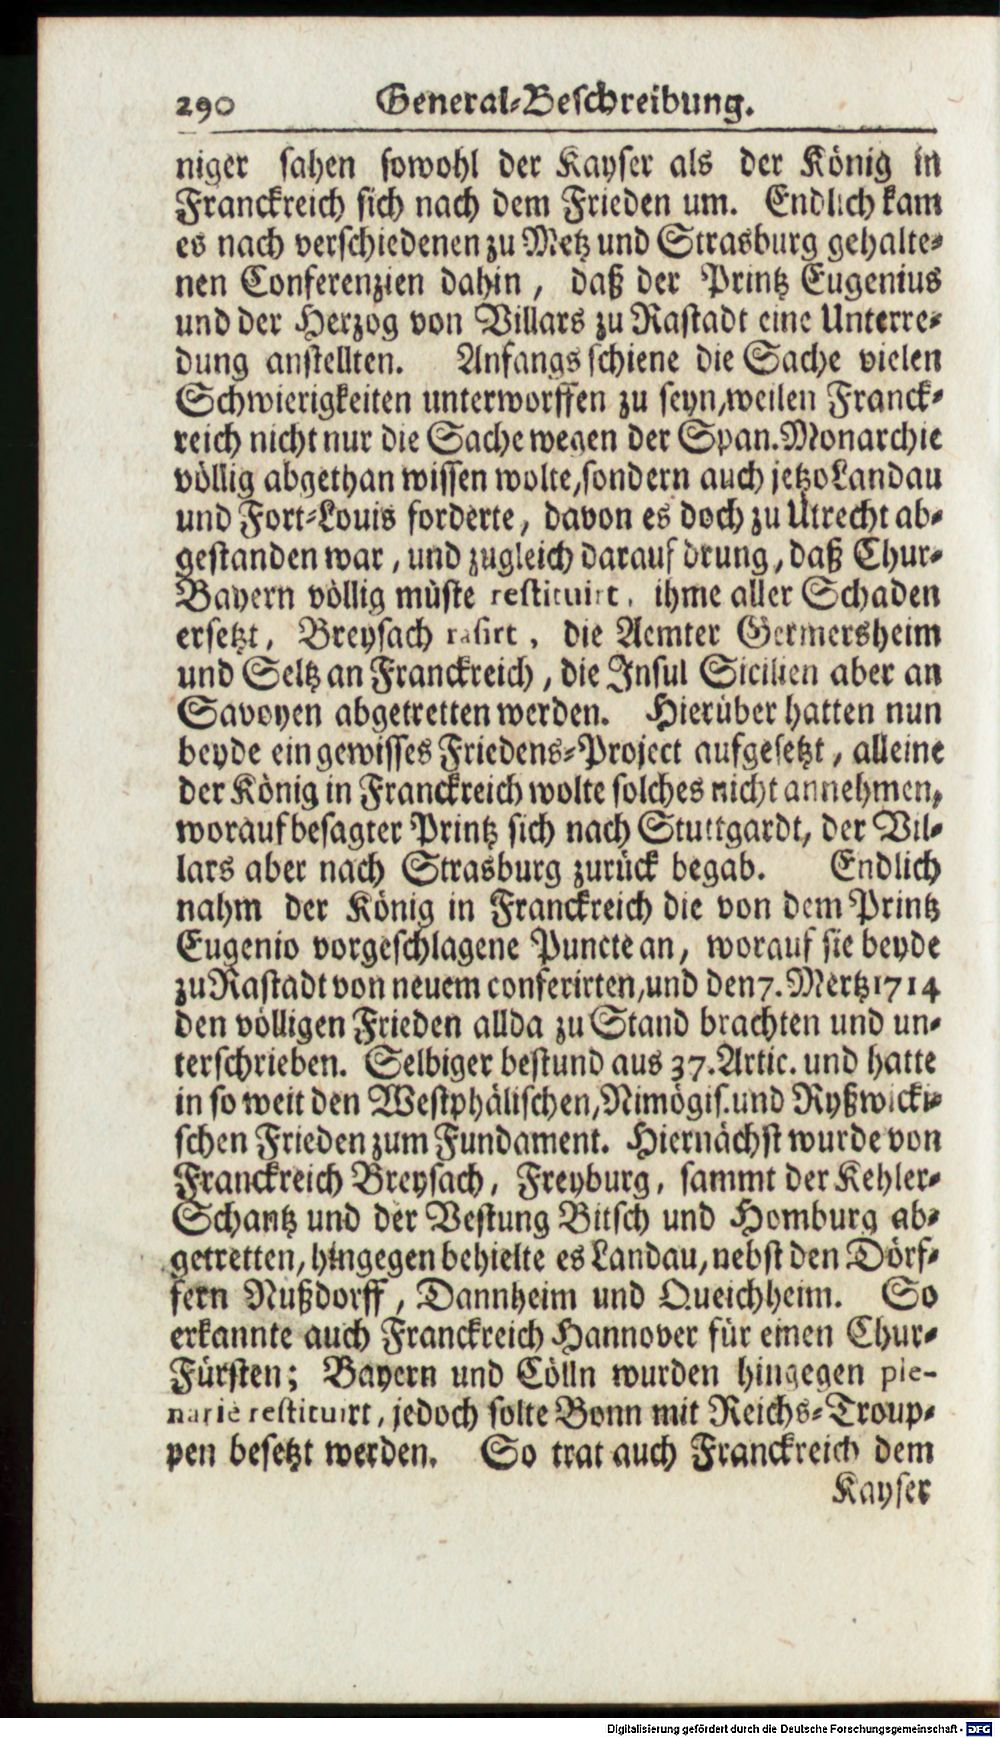 290 General-Beschreibung.
niger sahen sowohl der Kayser als der König in
Franckreich sich nach dem Frieden um. Endlich kam
es nach verschiedenen zu Metz und Strasburg gehalte-
nen Conferenzien dahin, daß der Printz Eugenius
und der Herzog von Villars zu Rastadt eine Unterre-
dung anstellten. Anfangs schiene die Sache vielen
Schwierigkeiten unterworffen zu seyn, weilen Franck-
reich nicht nur die Sache wegen der Span. Monarchie
völlig abgethan wissen wolte, sondern auch jetzo Landau
und Fort-Louis forderte, davon es doch zu Utrecht ab-
gestanden war, und zugleich darauf drung, daß Chur-
Bayern völlig müste restituirt, ihme aller Schaden
ersetzt, Breysach rasirt, die Aemter Germersheim
und Seltz an Franckreich, die Insul Sicilien aber an
Savoyen abgetretten werden. Hierüber hatten nun
beyde ein gewisses Friedens-Project aufgesetzt, alleine
der König in Franckreich wolte solches nicht annehmen,
worauf besagter Printz sich nach Stuttgardt, der Vil-
lars aber nach Strasburg zurück begab. Endlich
nahm der König in Franckreich die von dem Printz
Eugenio vorgeschlagene Puncte an, worauf sie beyde
zu Rastadt von neuem conferirten, und den 7. Mertz 1714
den völligen Frieden allda zu Stand brachten und un-
terschrieben. Selbiger bestund aus 37. Artic. und hatte
in so weit den Westphälischen, Nimögis. und Ryßwicki-
schen Frieden zum Fundament. Hiernächst wurde von
Franckreich Breysach, Freyburg, sammt der Kehler-
Schantz und der Vestung Bitsch und Homburg ab-
getretten, hingegen behielte es Landau, nebst den Dörf-
fern Nußdorff, Dannheim und Queichheim. So
erkannte auch Franckreich Hannover für einen Chur-
Fürsten; Bayern und Cölln wurden hingegen ple-
narie restituirt, jedoch solte Bonn mit Reichs-Troup-
pen besetzt werden. So trat auch Franckreich dem
Kayser
Digitalisierung gefördert durch die Deutsche Forschungsgemeinschaft - DFG